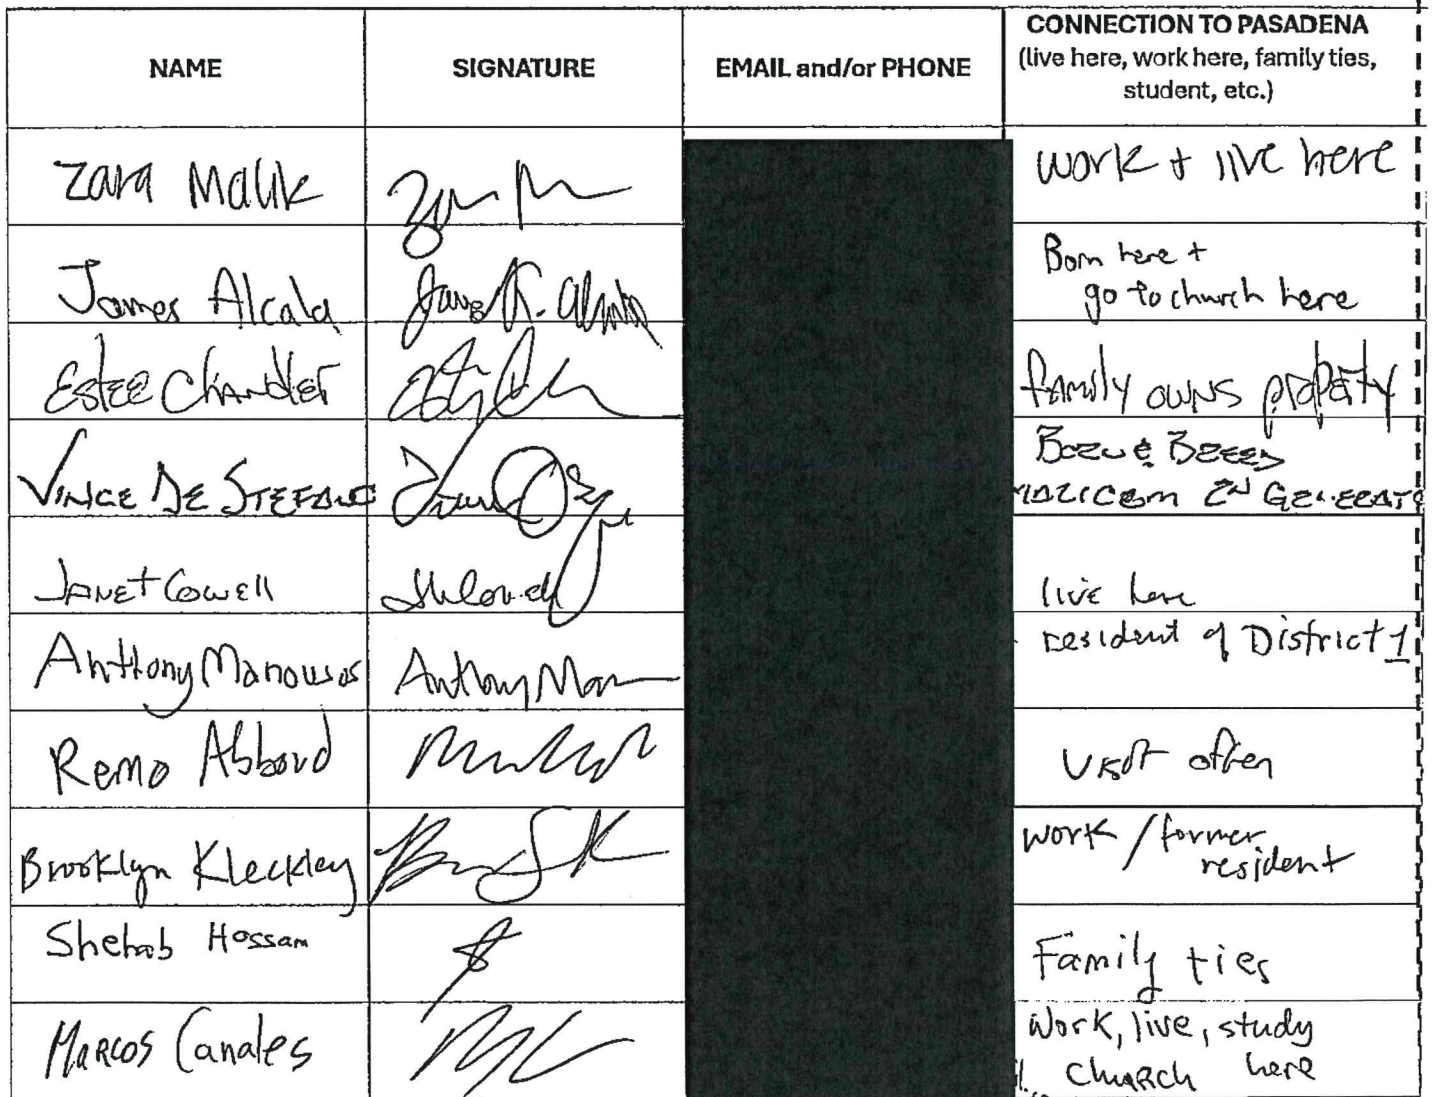 NAME
SIGNATURE
EMAIL and/or PHONE
CONNECTION TO PASADENA
(live here, work here, family ties,
student, etc.)
Zara Malik
work + live here
James Alcala
Born here +
go to church here
Estee Chandler
family owns property
VINCE DE STEFANO
Janet Cowell
live here
Anthony Manousos
Anthony Man
resident of District 1
Remo Abboud
visit often
Brooklyn Kleckley
work / former
resident
Shehab Hossam
Family ties
Marcos Canales
Work, live, study
church here